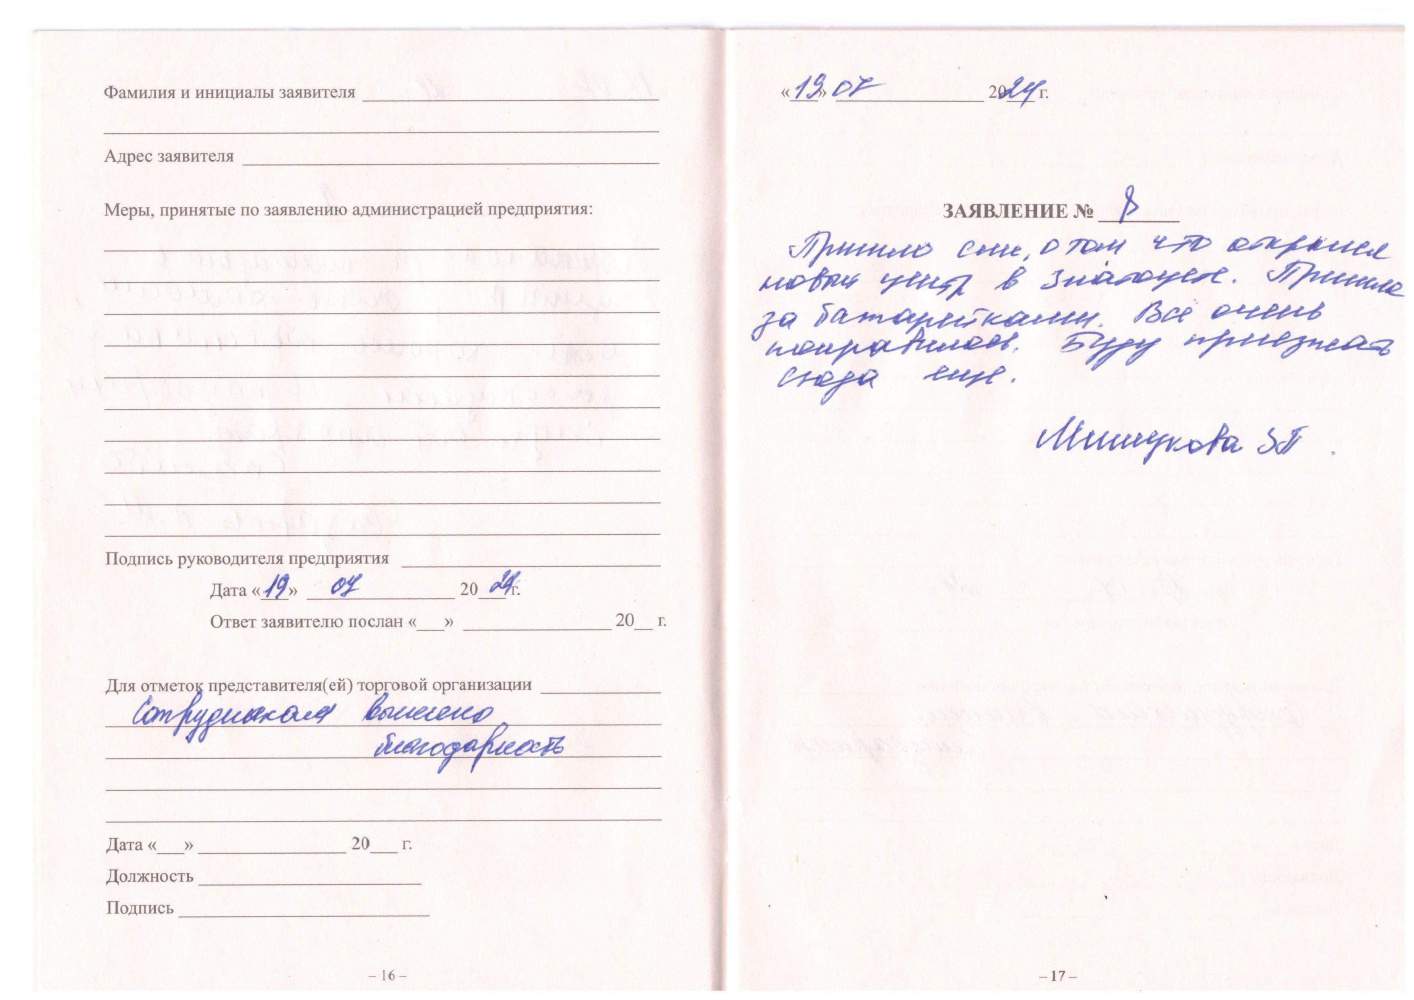 Фамилия и инициалы заявителя
Адрес заявителя
Меры, принятые по заявлению администрацией предприятия:
Подпись руководителя предприятия
Дата «19» 07 2024 г.
Ответ заявителю послан «___» 20__ г.
Для отметок представителя(ей) торговой организации
Сотрудникам вынесено
благодарность
Дата «___» 20___ г.
Должность
Подпись
– 16 –
«19» 07 2024 г.
ЗАЯВЛЕНИЕ № 8
Пришло смс, о том что открылся
новый центр в Златоусте. Пришла
за батарейками. Всё очень
понравилось. Буду приезжать
сюда еще.
ЗП
– 17 –